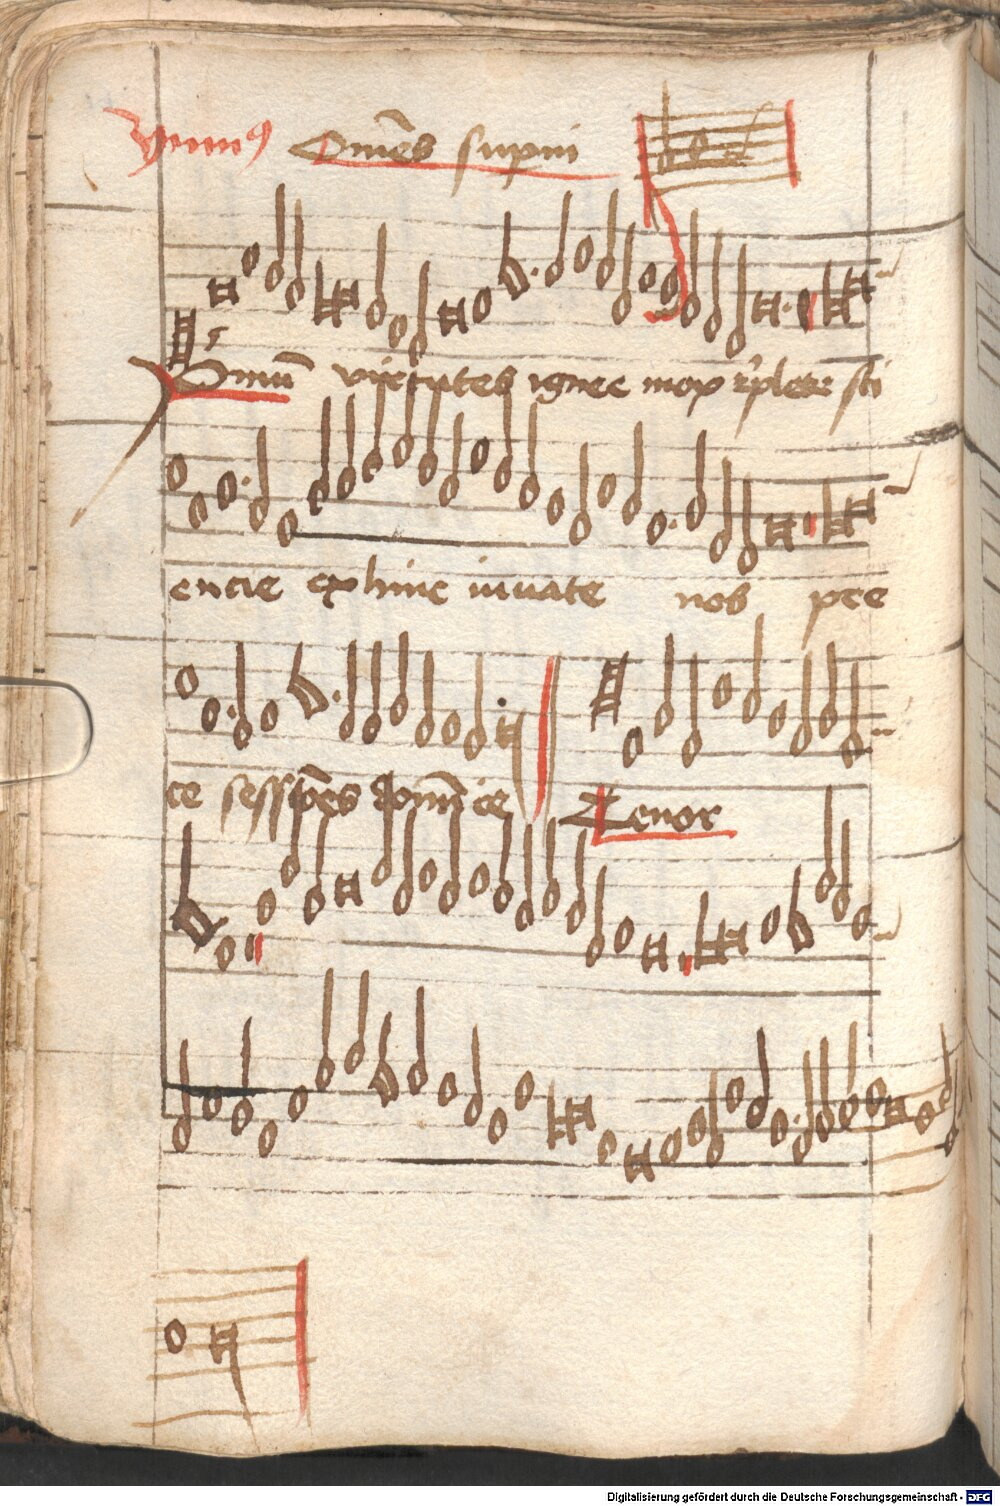 Ymnus Omēs supni
Omniū virtutes ignee mox rplete sci
encie exhinc iuuate nos pre
ce
Tenor
Digitalisierung gefördert durch die Deutsche Forschungsgemeinschaft - DFG